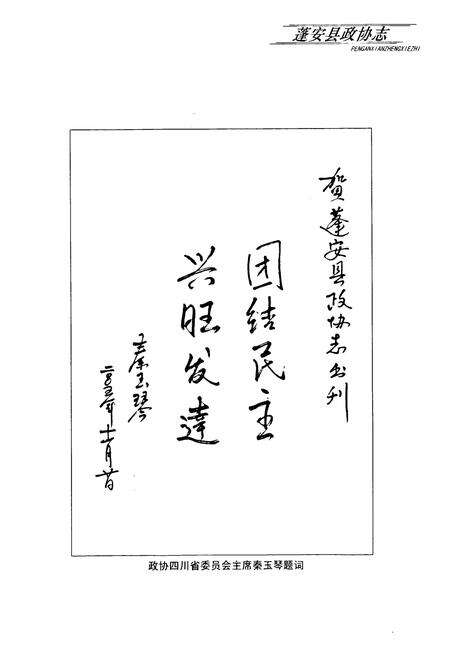 蓬安县政协志
PENGANXIANZHENGXIEZHI
贺蓬安县政协志出刊
团结民主
兴旺发達
秦玉琴
二〇〇五年十一月廿日
政协四川省委员会主席秦玉琴题词